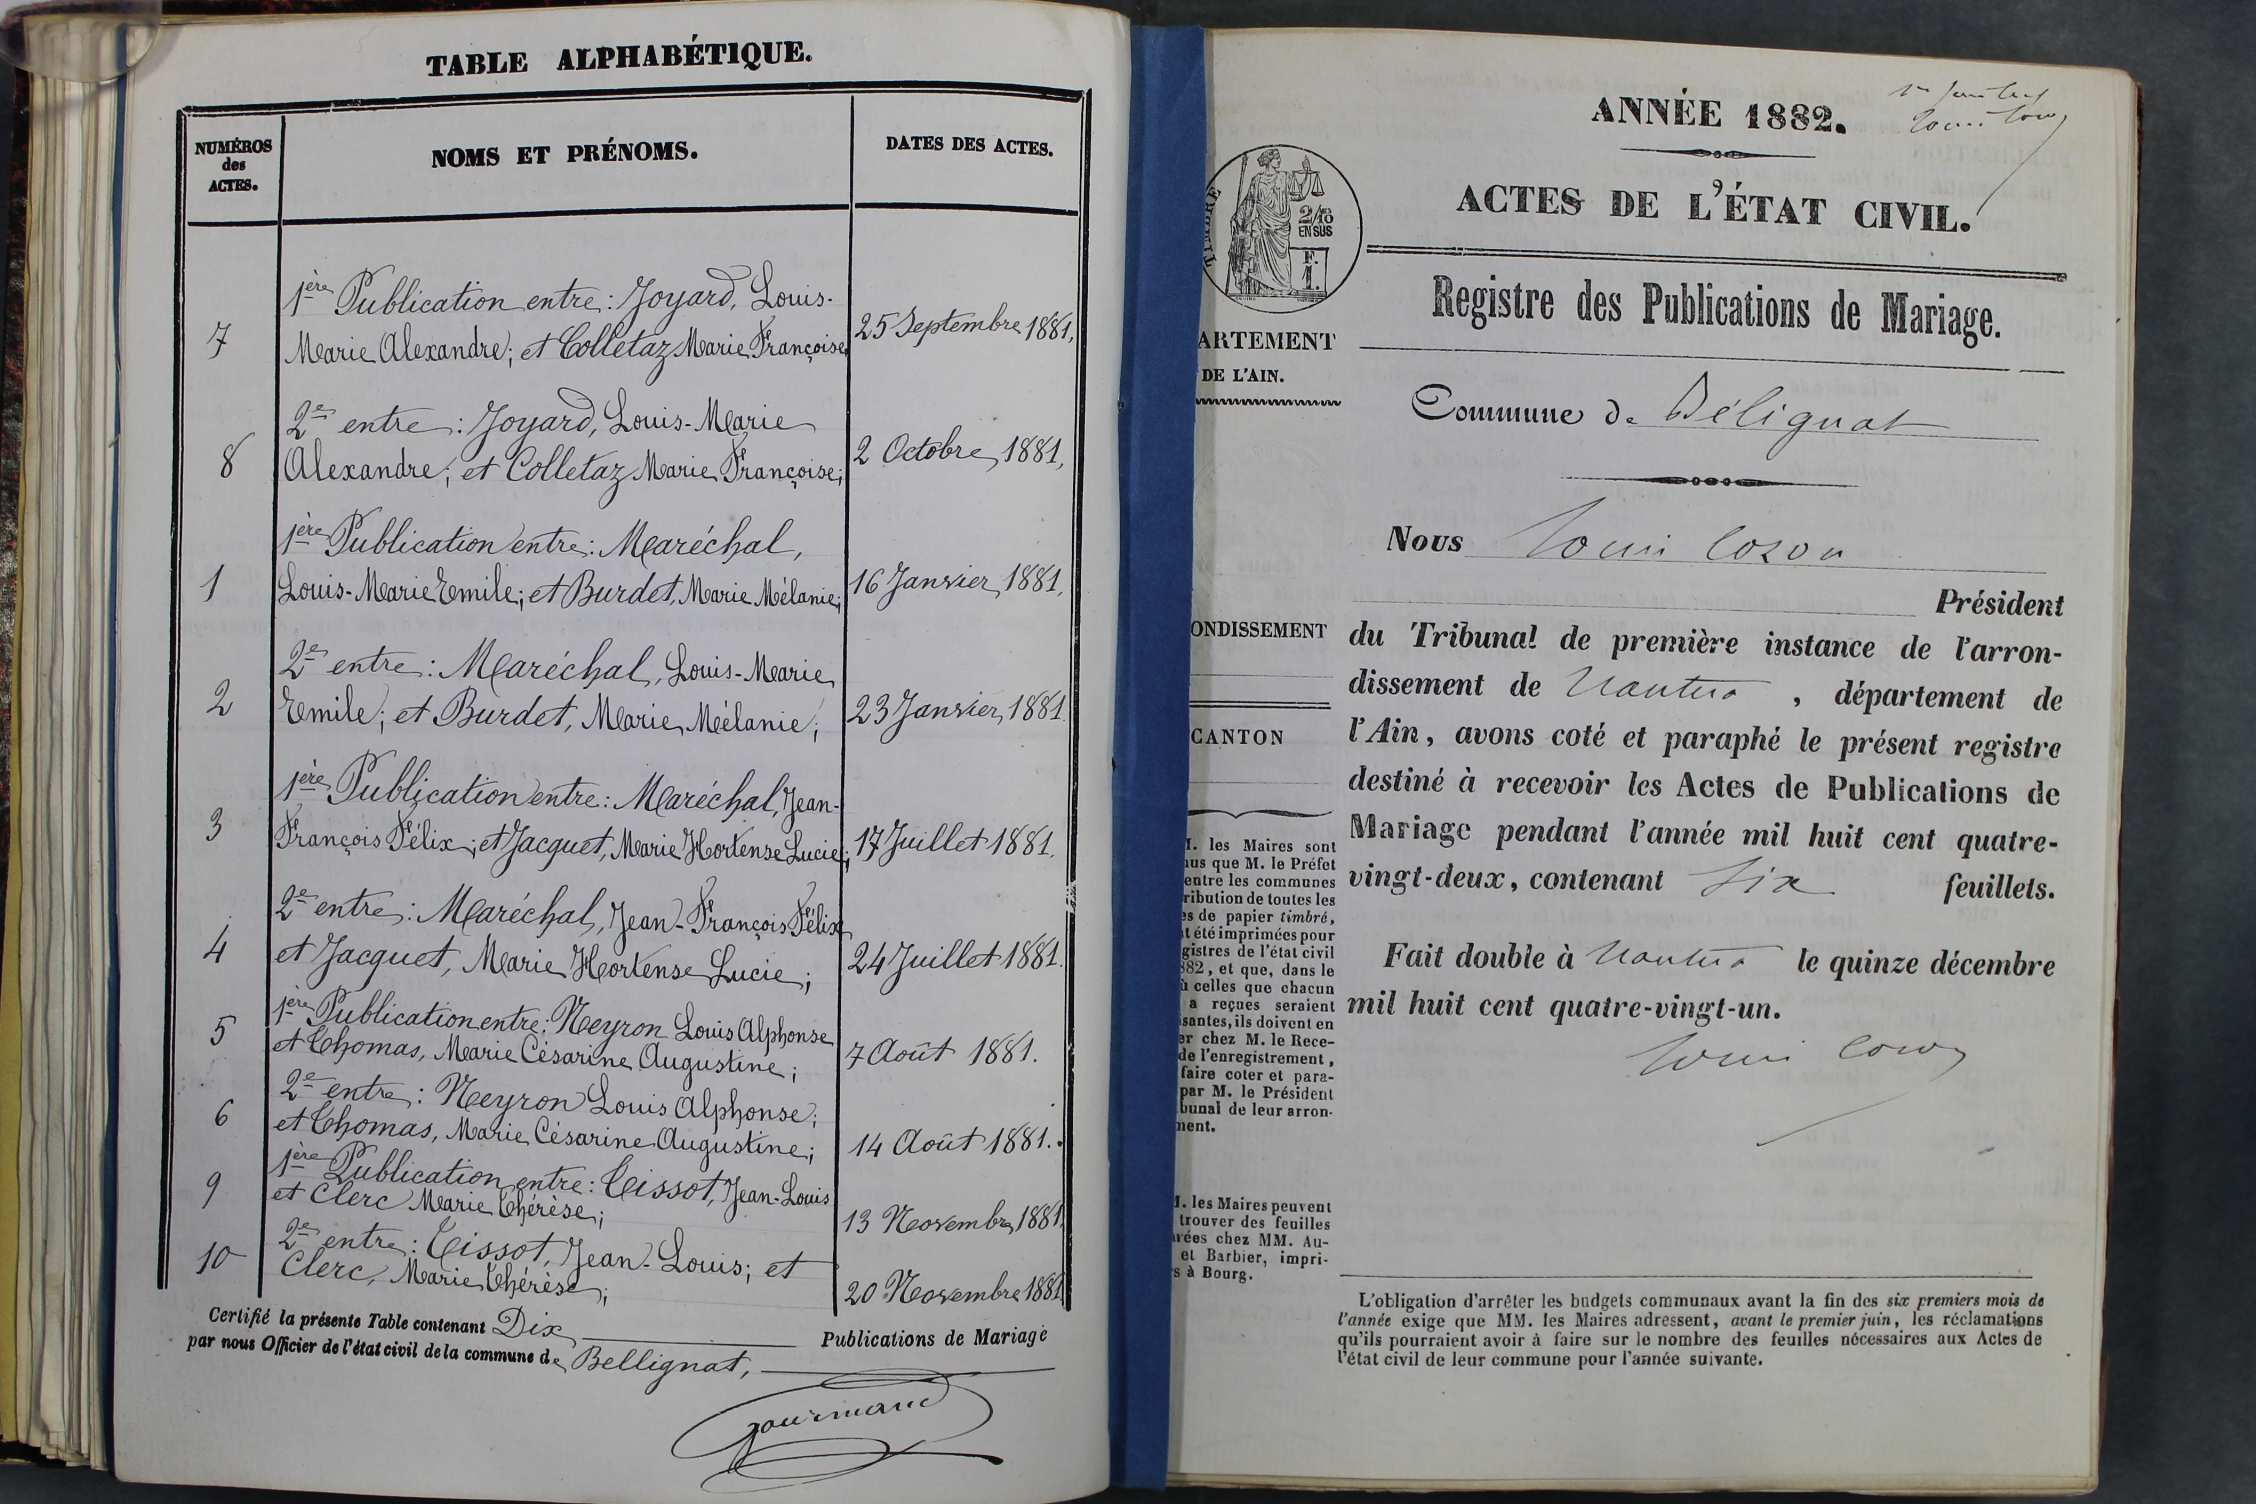 TABLE ALPHABÉTIQUE.
NUMÉROS
des
ACTES.
NOMS ET PRÉNOMS.
DATES DES ACTES.
1ère Publication entre: Joyard, Louis-
7 Marie Alexandre; et Colletaz Marie Françoise, 25 Septembre 1881,
2e entre: Joyard, Louis-Marie
8 Alexandre; et Colletaz Marie Françoise; 2 Octobre, 1881,
1ère Publication entre: Maréchal,
1 Louis-Marie Emile; et Burdet, Marie Mélanie; 16 Janvier, 1881,
2e entre: Maréchal, Louis-Marie
2 Emile; et Burdet, Marie Mélanie; 23 Janvier, 1881.
1ère Publication entre: Maréchal, Jean-
3 François Félix; et Jacquet, Marie Hortense Lucie; 17 Juillet 1881.
2e entre: Maréchal, Jean-François Félix
4 et Jacquet, Marie Hortense Lucie; 24 Juillet 1881.
1ère Publication entre: Neyron Louis Alphonse
5 et Thomas, Marie Césarine Augustine; 7 Août 1881.
2e entre: Neyron Louis Alphonse;
6 et Thomas, Marie Césarine Augustine; 14 Août 1881.
1ère Publication entre: Tissot, Jean-Louis
9 et Clerc Marie Thérèse; 13 Novembre, 1881,
2e entre: Tissot, Jean-Louis; et
10 Clerc, Marie Thérèse; 20 Novembre 1881
Certifié la présente Table contenant Dix Publications de Mariage
par nous Officier de l'état civil de la commune de Bellignat,
gourmand
ANNÉE 1882.
ACTES DE L'ÉTAT CIVIL.
TIMBRE
2/10
EN SUS
F.
1.
Registre des Publications de Mariage.
ARTEMENT
DE L'AIN.
Commune de Bélignat
Nous
Président
ONDISSEMENT
du Tribunal de première instance de l'arron-
dissement de Nantua, département de
CANTON
l'Ain, avons coté et paraphé le présent registre
destiné à recevoir les Actes de Publications de
Mariage pendant l'année mil huit cent quatre-
vingt-deux, contenant six feuillets.
Fait double à Nantua le quinze décembre
mil huit cent quatre-vingt-un.
les Maires sont
que M. le Préfet
entre les communes
ribution de toutes les
de papier timbré,
été imprimées pour
gistres de l'état civil
82, et que, dans le
celles que chacun
a reçues seraient
santes, ils doivent en
er chez M. le Rece-
de l'enregistrement,
faire coter et para-
par M. le Président
bunal de leur arron-
ment.
M. les Maires peuvent
trouver des feuilles
rées chez MM. Au-
et Barbier, impri-
s à Bourg.
L'obligation d'arrêter les budgets communaux avant la fin des six premiers mois de
l'année exige que MM. les Maires adressent, avant le premier juin, les réclamations
qu'ils pourraient avoir à faire sur le nombre des feuilles nécessaires aux Actes de
l'état civil de leur commune pour l'année suivante.